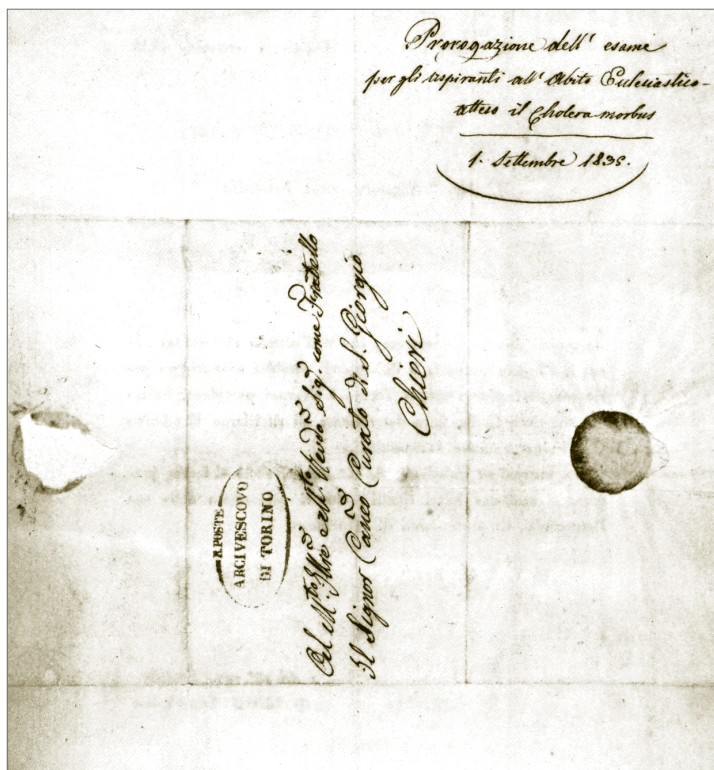 Prorogazione dell' esame
per gli aspiranti all' Abito Eclesiastico
atteso il Cholera morbus
1. Settembre 1835.
R. POSTE
ARCIVESCOVO
DI TORINO
Al M.to Ill.e M.to Rev.do Sig. come Fratello
Il Signor Can.co Curato di S. Giorgio
Chieri